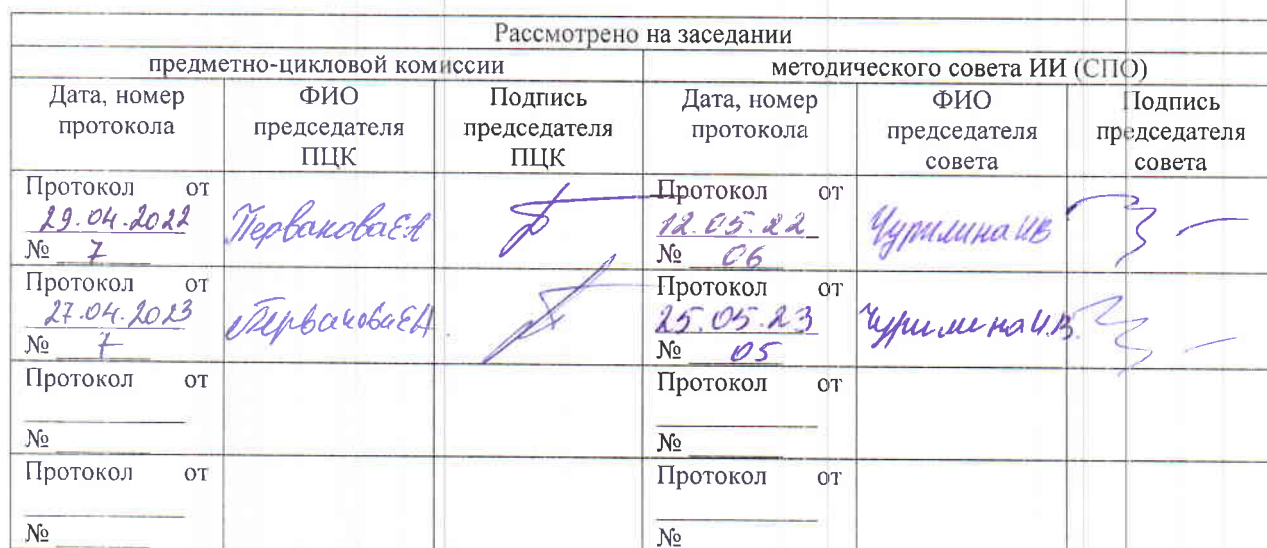 Рассмотрено на заседании
предметно-цикловой комиссии
методического совета ИИ (СПО)
Дата, номер
протокола
ФИО
председателя
ПЦК
Подпись
председателя
ПЦК
Дата, номер
протокола
ФИО
председателя
совета
Подпись
председателя
совета
Протокол от
29.04.2022
№ 7
Первакова Е.А
Протокол от
12.05.22
№ 06
Чурилина ИВ
Протокол от
27.04.2023
№ 7
Первакова Е.А.
Протокол от
25.05.23
№ 05
Чурилина И.В.
Протокол от
№
Протокол от
№
Протокол от
№
Протокол от
№